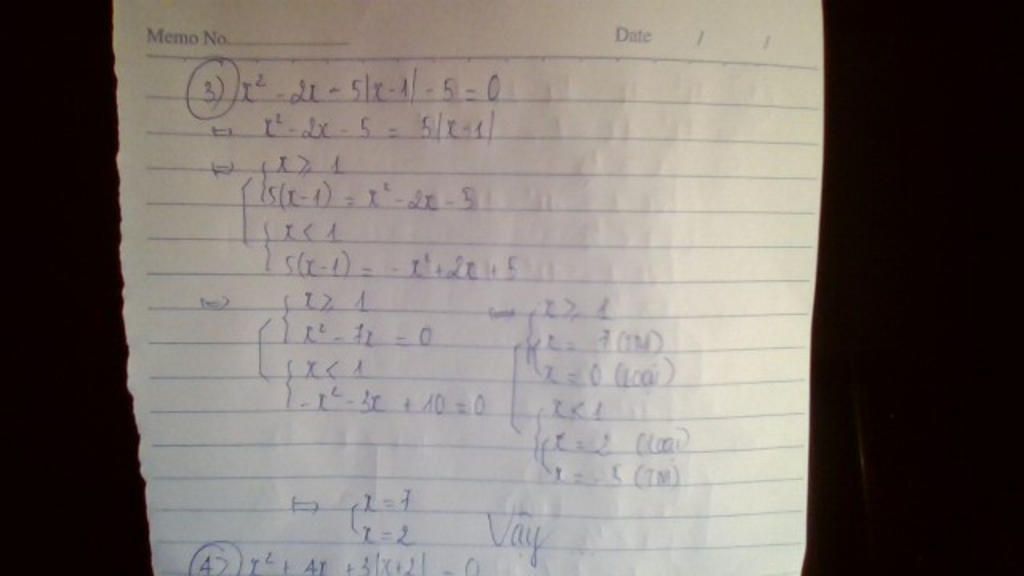 Memo No. Date / /
3) x² - 2x - 5|x-1| - 5 = 0
⇔ x² - 2x - 5 = 5|x-1|
⇔ x ≥ 1
5(x-1) = x² - 2x - 5
x < 1
5(x-1) = -x² + 2x + 5
⇔ x ≥ 1
x² - 7x = 0
x < 1
-x² - 3x + 10 = 0
⇔ x ≥ 1
x = 7 (TM)
x = 0 (loại)
x < 1
x = 2 (loại)
x = -5 (TM)
⇔ x = 7
x = 2 Vậy
4) x² + 4x + 3|x+2| = 0